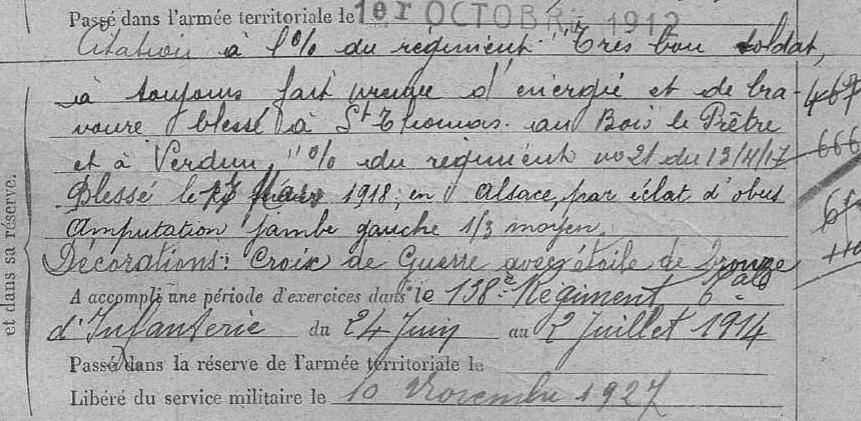 Passé dans l'armée territoriale le 1er OCTOBRE 1912
Citation à l'O/o du régiment "Très bon soldat,
a toujours fait preuve d'énergie et de bra-
voure blessé à St Thomas. au Bois le Prêtre
et à Verdun," O/o du régiment no 21 du 12/4/17
Blessé le 1918; en Alsace, par éclat d'obus
Amputation jambe gauche 1/3 moyen.
Décorations: Croix de Guerre avec étoile de bronze
A accompli une période d'exercices dans le 138e Régiment
d'Infanterie du 24 Juin au 2 Juillet 1914
Passé dans la réserve de l'armée territoriale le
Libéré du service militaire le 10 Novembre 1927
et dans sa réserve.